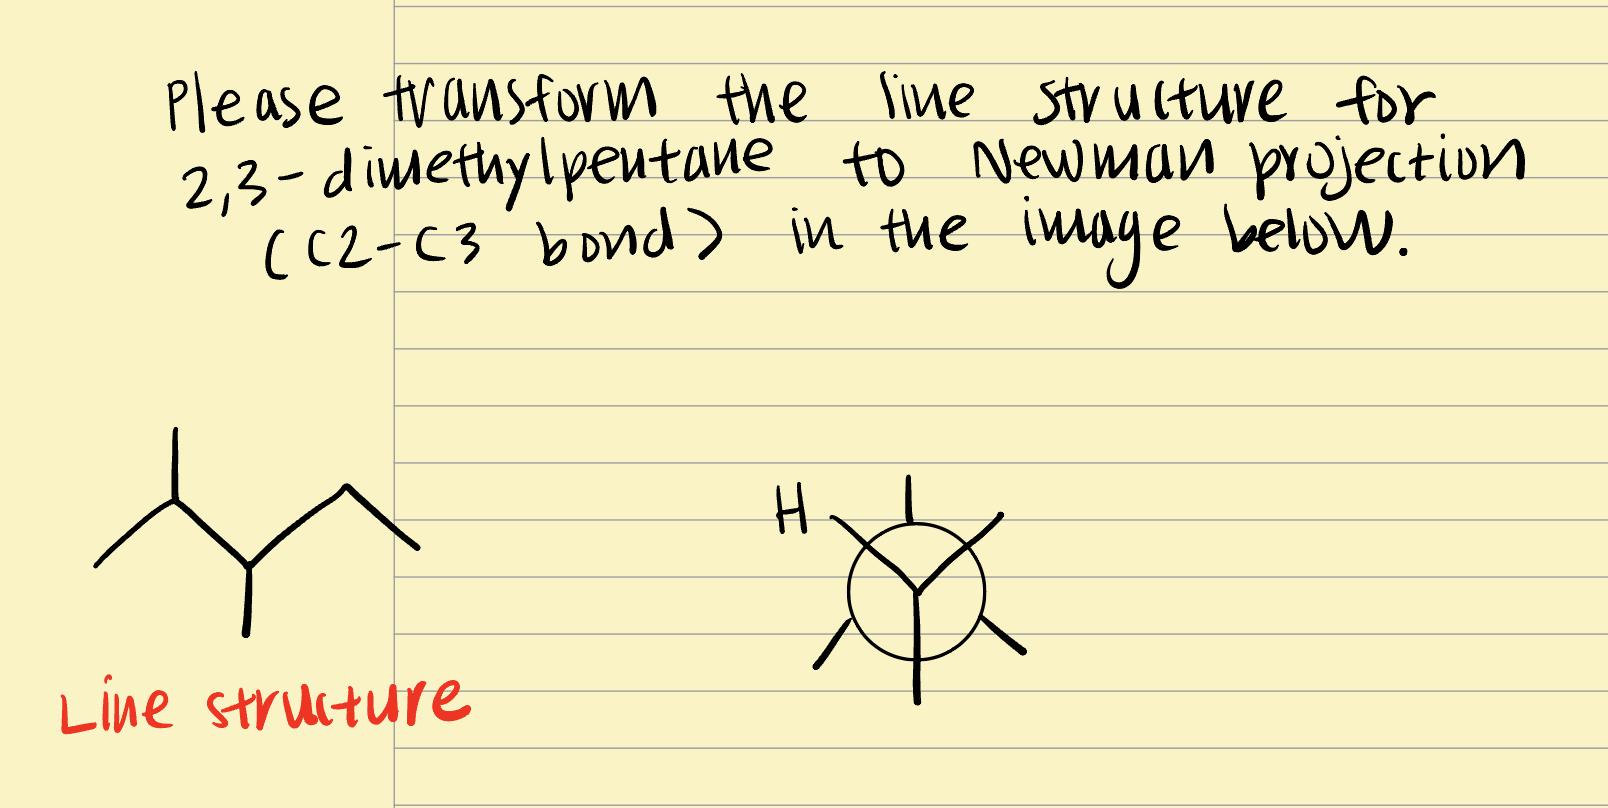 Please transform the line structure for
2,3-dimethylpentane to Newman projection
(C2-C3 bond) in the image below.
H
Line structure